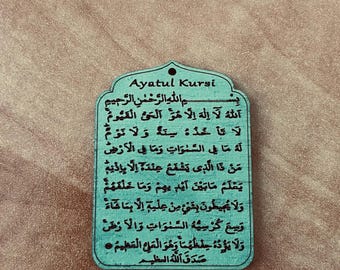 Ayatul Kursi
بِسْمِ اللهِ الرَّحْمٰنِ الرَّحِيْمِ
اَللهُ لَا اِلٰهَ اِلَّا هُوَ اَلْحَيُّ الْقَيُّوْمُ
لَا تَأْخُذُهُ سِنَةٌ وَلَا نَوْمٌ
لَهُ مَا فِي السَّمٰوَاتِ وَمَا فِي الْاَرْضِ
مَنْ ذَا الَّذِي يَشْفَعُ عِنْدَهُ اِلَّا بِاِذْنِهِ
يَعْلَمُ مَا بَيْنَ اَيْدِيْهِمْ وَمَا خَلْفَهُمْ
وَلَا يُحِيْطُوْنَ بِشَيْءٍ مِنْ عِلْمِهِ اِلَّا بِمَا شَاءَ
وَسِعَ كُرْسِيُّهُ السَّمٰوَاتِ وَالْاَرْضَ
وَلَا يَؤُدُهُ حِفْظُهُمَا وَهُوَ الْعَلِيُّ الْعَظِيْمُ
صَدَقَ اللهُ الْعَظِيْمُ